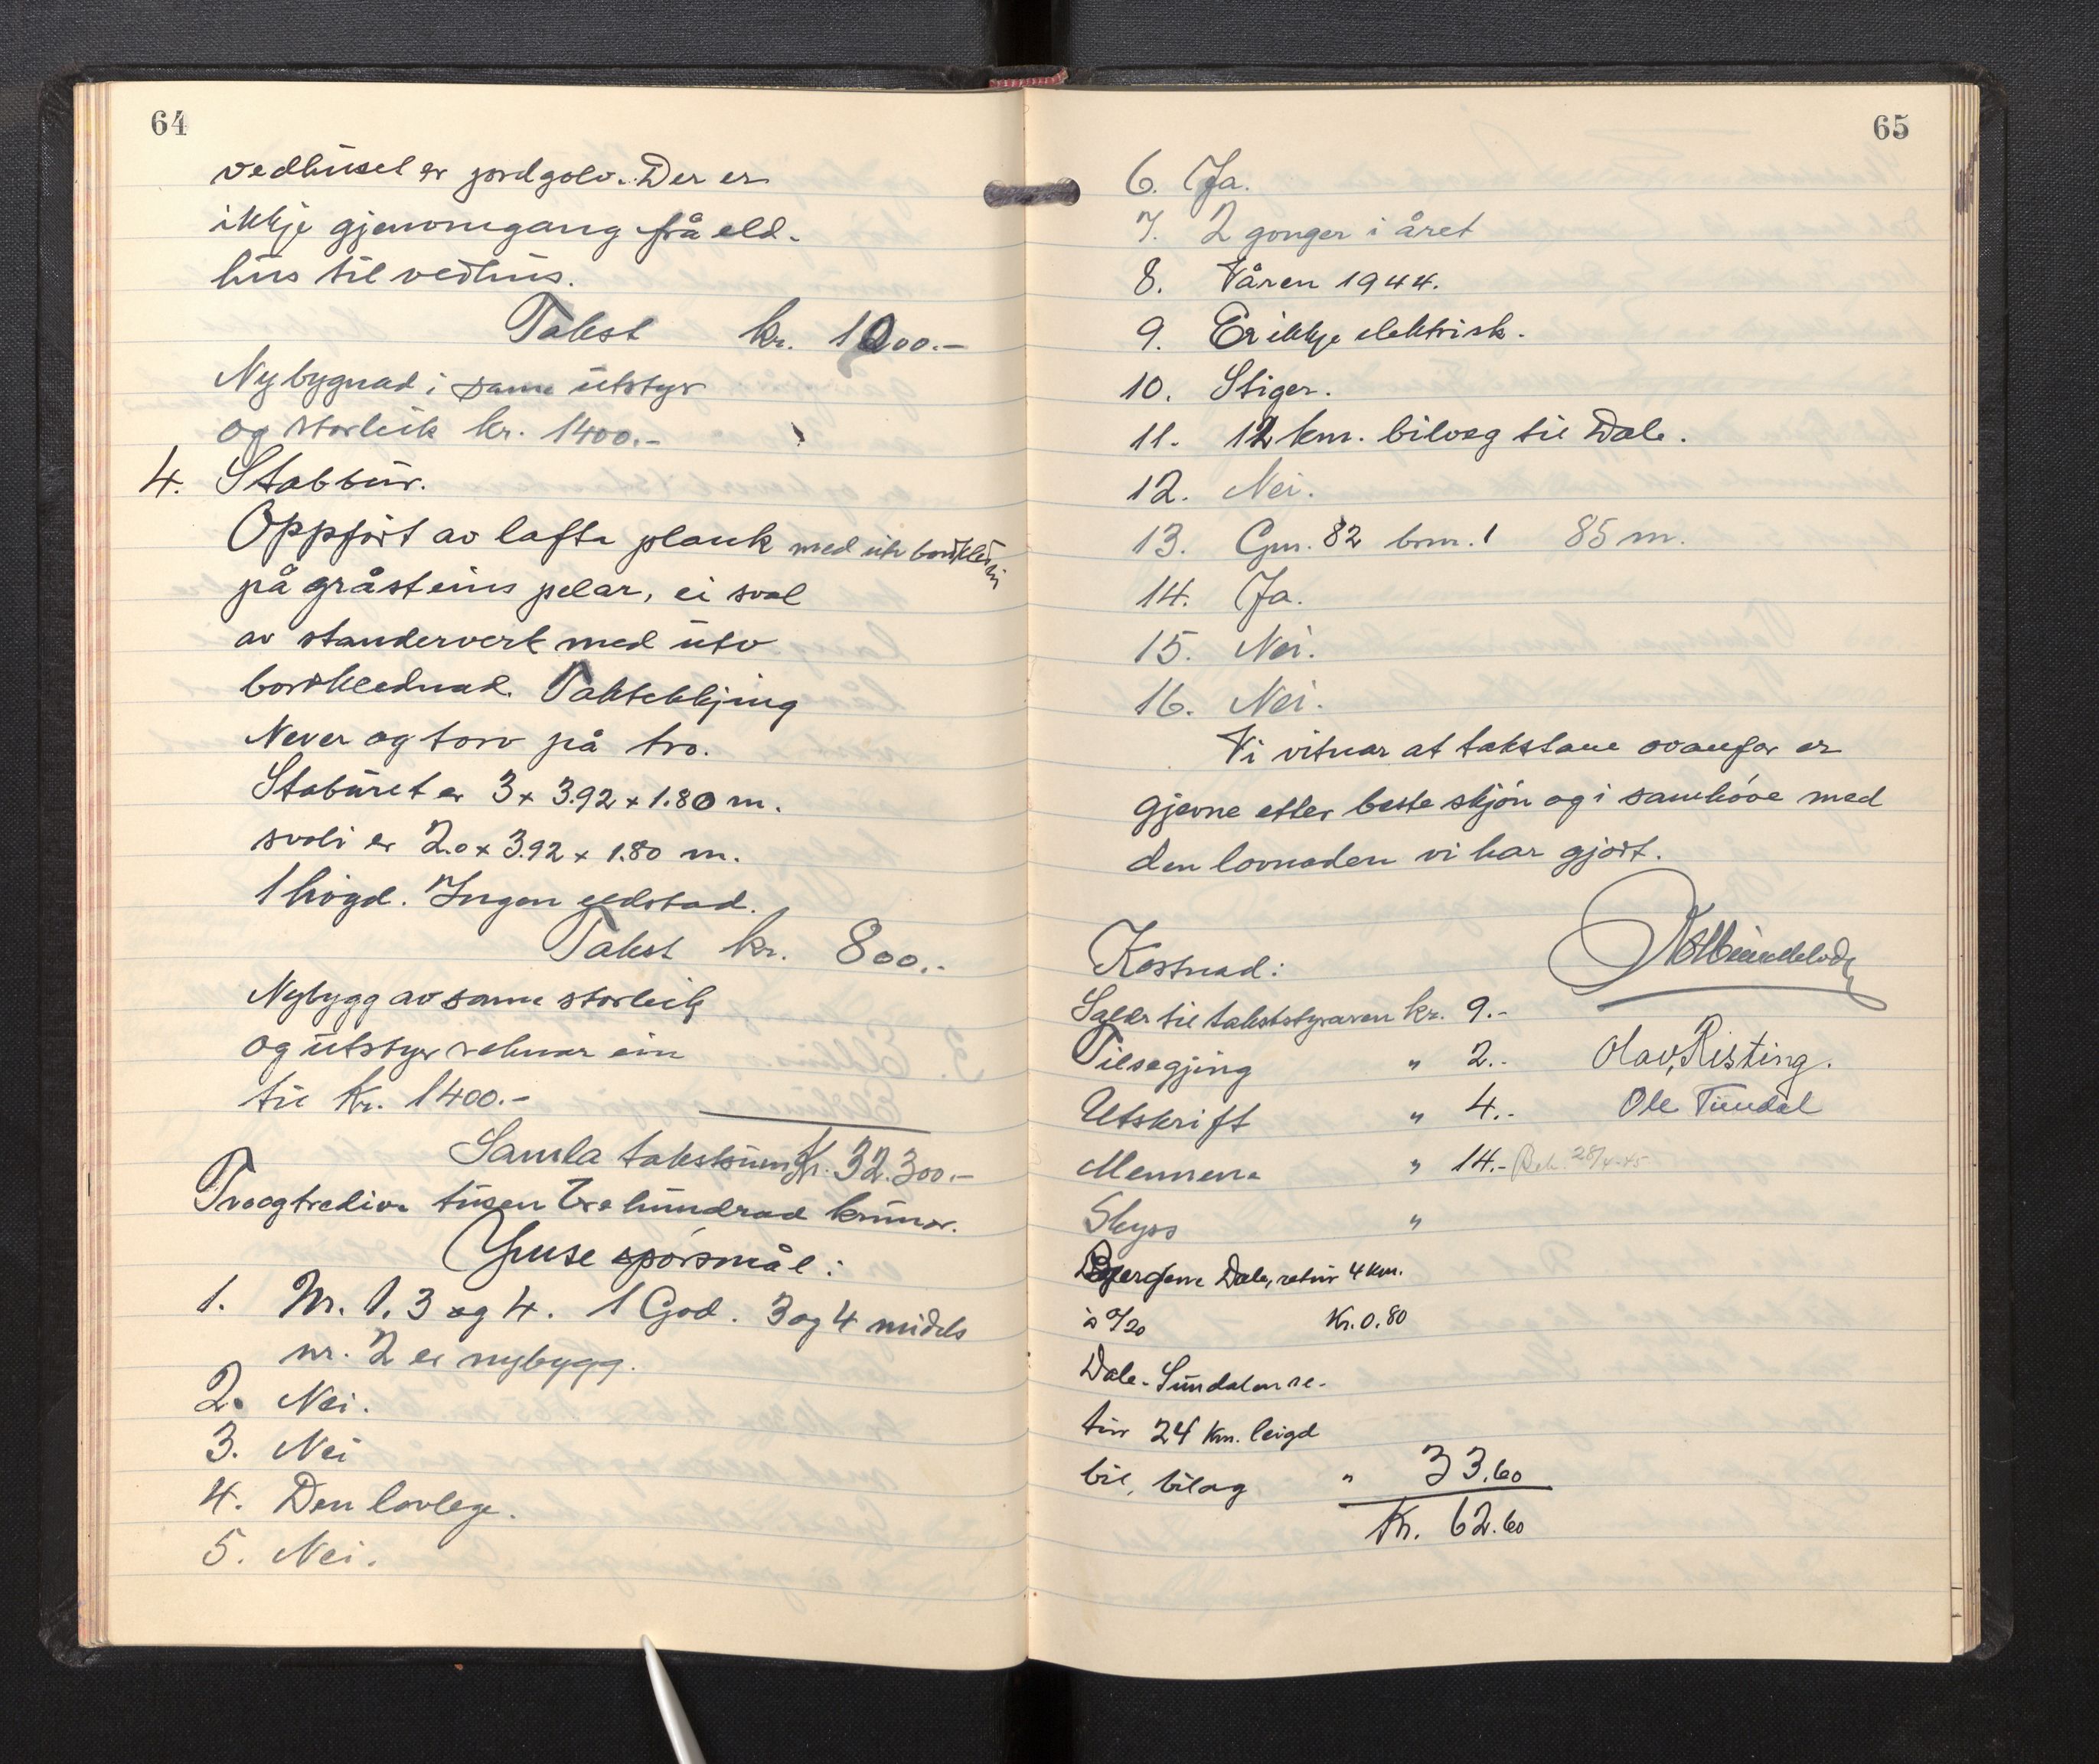 64
vedhuset er jordgolv. Der er
ikkje gjenomgang frå eld-
hus til vedhus.
Takst kr. 1200.-
Nybygnad i same utstyr
og storleik kr. 1400.-
4. Stabbur.
Oppført av lafta plank med utv bordkledni
ni
på gråsteins pelar, ei sval
av standerverk med utv
bordklednad. Taktekkjing
Never og torv på tro.
Staburet er 3 x 3.92 x 1.80 m.
svoli er 2.0 x 3.92 x 1.80 m.
1 høgd. Ingen eldstad.
Takst kr. 800.-
Nybygg av same storleik
og utstyr reknar ein
til kr. 1400.-
Samla takstsum Kr. 32.300.-
Tvoogtredive tusen tre hundrad krunor.
Ymse spørsmål:
1. Nr. 1, 3 og 4. 1 God. 3 og 4 midels
nr. 2 er nybygg.
2. Nei.
3. Nei
4. Den lovlege.
5. Nei.
65
6. Ja.
7. 2 gonger i året
8. Våren 1944.
9. Er ikkje elektrisk.
10. Stiger.
11. 12 km. bilveg til Dale.
12. Nei.
13. Gnr. 82 brnr. 1 85 m.
14. Ja.
15. Nei.
16. Nei.
Vi vitnar at takstane ovanfor er
gjevne etter beste skjøn og i samhøve med
den lovnaden vi har gjort.
Kostnad:
Salær til takststyraren kr. 9.-
Tilsegjing " 2.- Olav Risting.
Utskrift " 4.- Ole Tundal
Mennene " 14.- Bet. 28/4-45
Skyss "
Dale, retur 4 km.
à 0/20 Kr. 0.80
Dale - Sundalen re-
tur 24 km. leigd
bil, bilag " 33.60
Kr. 62.60